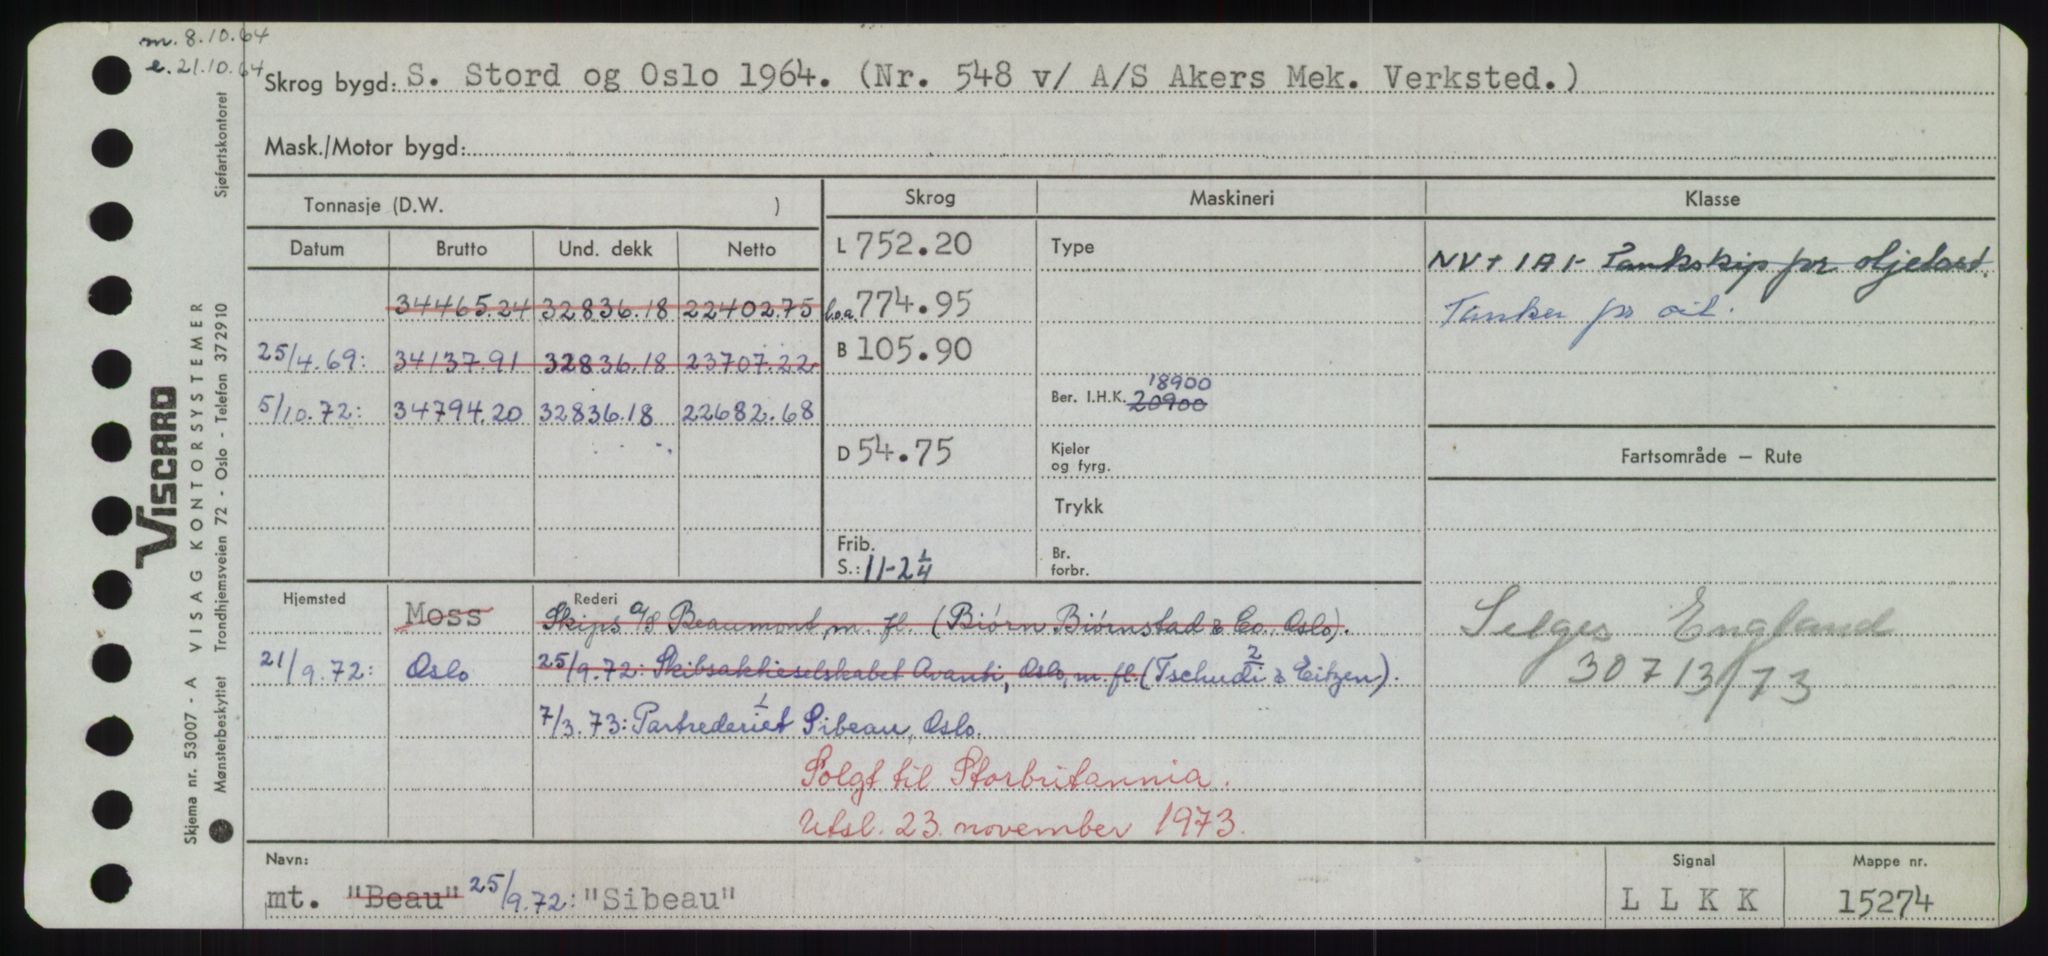 m. 8.10.64
e. 21.10.64
Skrog bygd: S. Stord og Oslo 1964. (Nr. 548 v/ A/S Akers Mek. Verksted.)
Mask./Motor bygd:
Tonnasje (D.W. )
Skrog Maskineri Klasse
Datum Brutto Und. dekk Netto
L 752.20 Type
NV+ 1A1- Tankskip for oljelast.
34465.24 32836.18 22402.75
l.o.a. 774.95
Tanker for oil.
25/4.69: 34137.91 32836.18 23707.22
B 105.90
18900
Ber. I.H.K. 20900
5/10.72: 34794.20 32836.18 22682.68
D 54.75
Kjeler
og fyrg.
Fartsområde – Rute
Trykk
Frib.
S.: 11-2 1/4
Br.
forbr.
Hjemsted Rederi
Moss Skips a/s Beaumont m. fl. (Biørn Biørnstad & Co., Oslo).
Selges England
21/9.72: Oslo 25/9.72: Skibsaktieselskabet Avanti, Oslo, m. fl. (Tschudi & Eitzen). 2
30713/73
7/3.73: Partrederiet Sibeau, Oslo. 1
Solgt til Storbritannia.
Utsl. 23. november 1973.
Navn: Signal Mappe nr.
mt. "Beau" 25/9.72: "Sibeau" LLKK 15274
VISCARD
Skjema nr. 53007 - A VISAG KONTORSYSTEMER
Mønsterbeskyttet Trondhjemsveien 72 - Oslo - Telefon 372910 Sjøfartskontoret